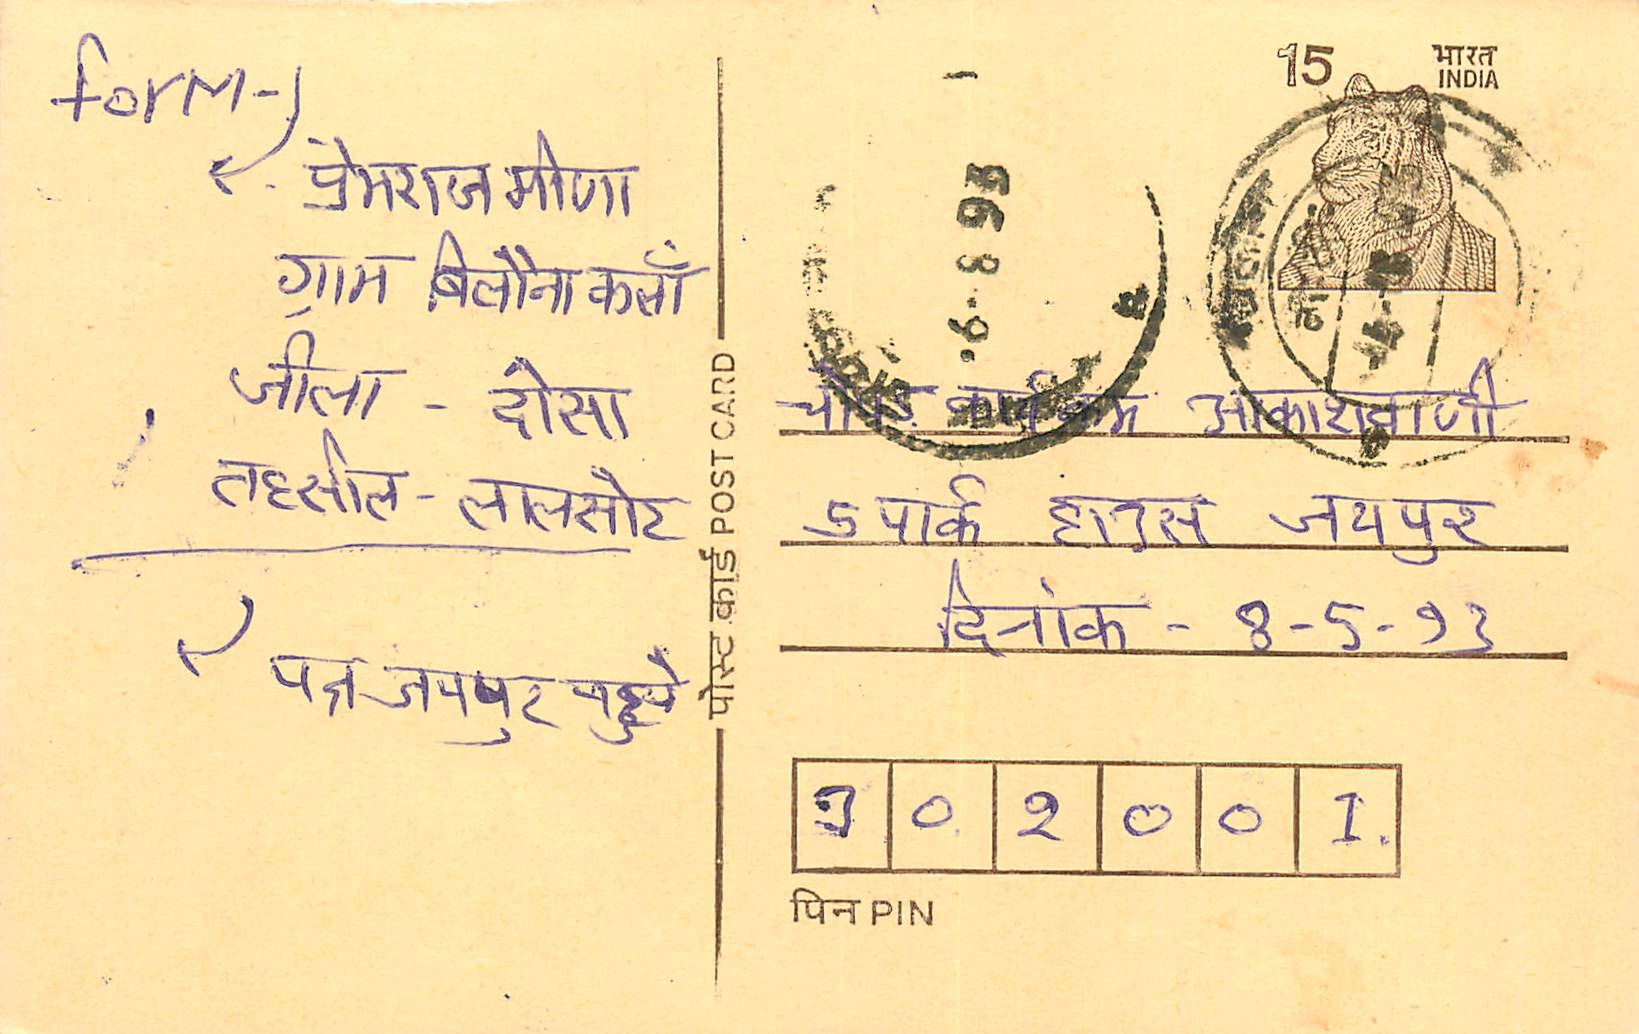 form-
प्रेमराज मीणा
ग्राम बिलौना कलाँ
जीला - दौसा
तहसील - लालसोट
पत्र जयपुर पहुचे
पोस्ट कार्ड POST CARD
15
भारत
INDIA
6 8 93
चौपड कार्यक्रम आकाशवाणी
5 पार्क हाउस जयपुर
दिनांक - 8-5-93
302001.
पिन PIN